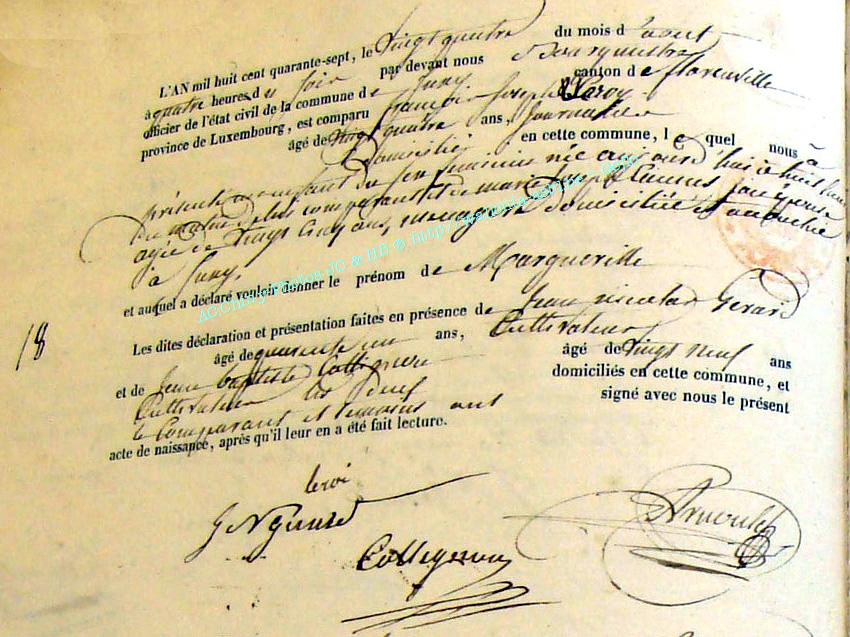 L'AN mil huit cent quarante-sept, le vingt quatre du mois d'aout
à quatre heures du soir par devant nous Bourgmestre
officier de l'état civil de la commune de Jusy canton de florenville
province de Luxembourg, est comparu françois Joseph Leroy
âgé de vingt quatre ans, Journalier
Domicilié en cette commune, lequel nous a
présenté un enfant du sexe féminin née aujourd'hui à huit heures
du matin de lui comparant et de marie son épouse
agée de vingt cinq ans, ménagère Domiciliée et accouchée
à Jusy,
et auquel a déclaré vouloir donner le prénom de Margueritte
Les dites déclaration et présentation faites en présence de Jean nicolas Gérard
âgé de quarante un ans, Cultivateur
et de Jean baptiste Collignon âgé de vingt neuf ans
Cultivateur les deux domiciliés en cette commune, et
le Comparant et témoins ont signé avec nous le présent
acte de naissance, après qu'il leur en a été fait lecture.
18
leroi
J N Gerard
Collignon
Arnould